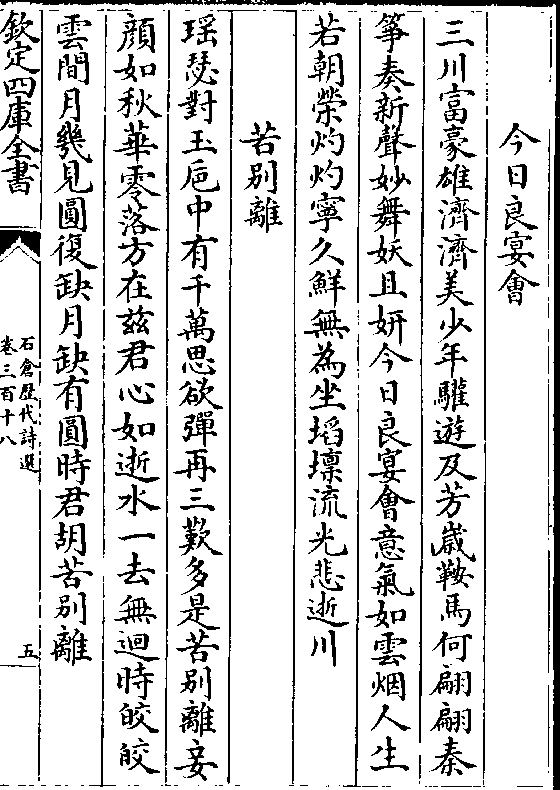 今日良宴會
三川富豪雄濟濟美少年驩遊及芳嵗鞍馬何翩翩秦
筝奏新聲妙舞妖且妍今日良宴會意氣如雲烟人生
若朝榮灼灼寧久鮮無為坐坮壈流光悲逝川
苦别離
瑶瑟對玉巵中有千萬思欲彈再三歎多是苦别離妾
顔如秋華零落方在兹君心如逝水一去無迴時皎皎
雲間月幾見圓復缺月缺有圓時君胡苦别離
欽定四庫全書
石倉歴代詩選
卷三百十八
五